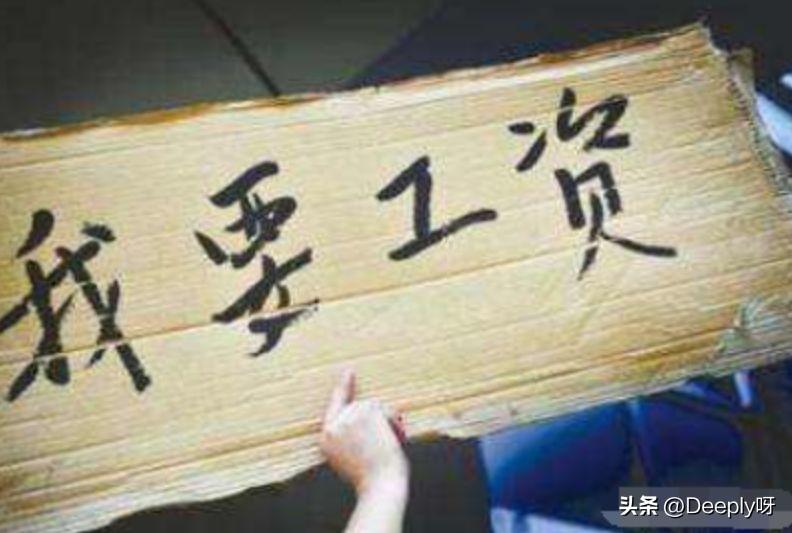 我要工资
头条 @Deeply呀